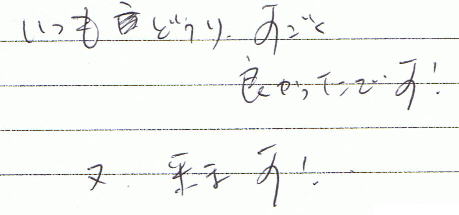 いつも どうり、すごく
良かったです!
又 来ます!